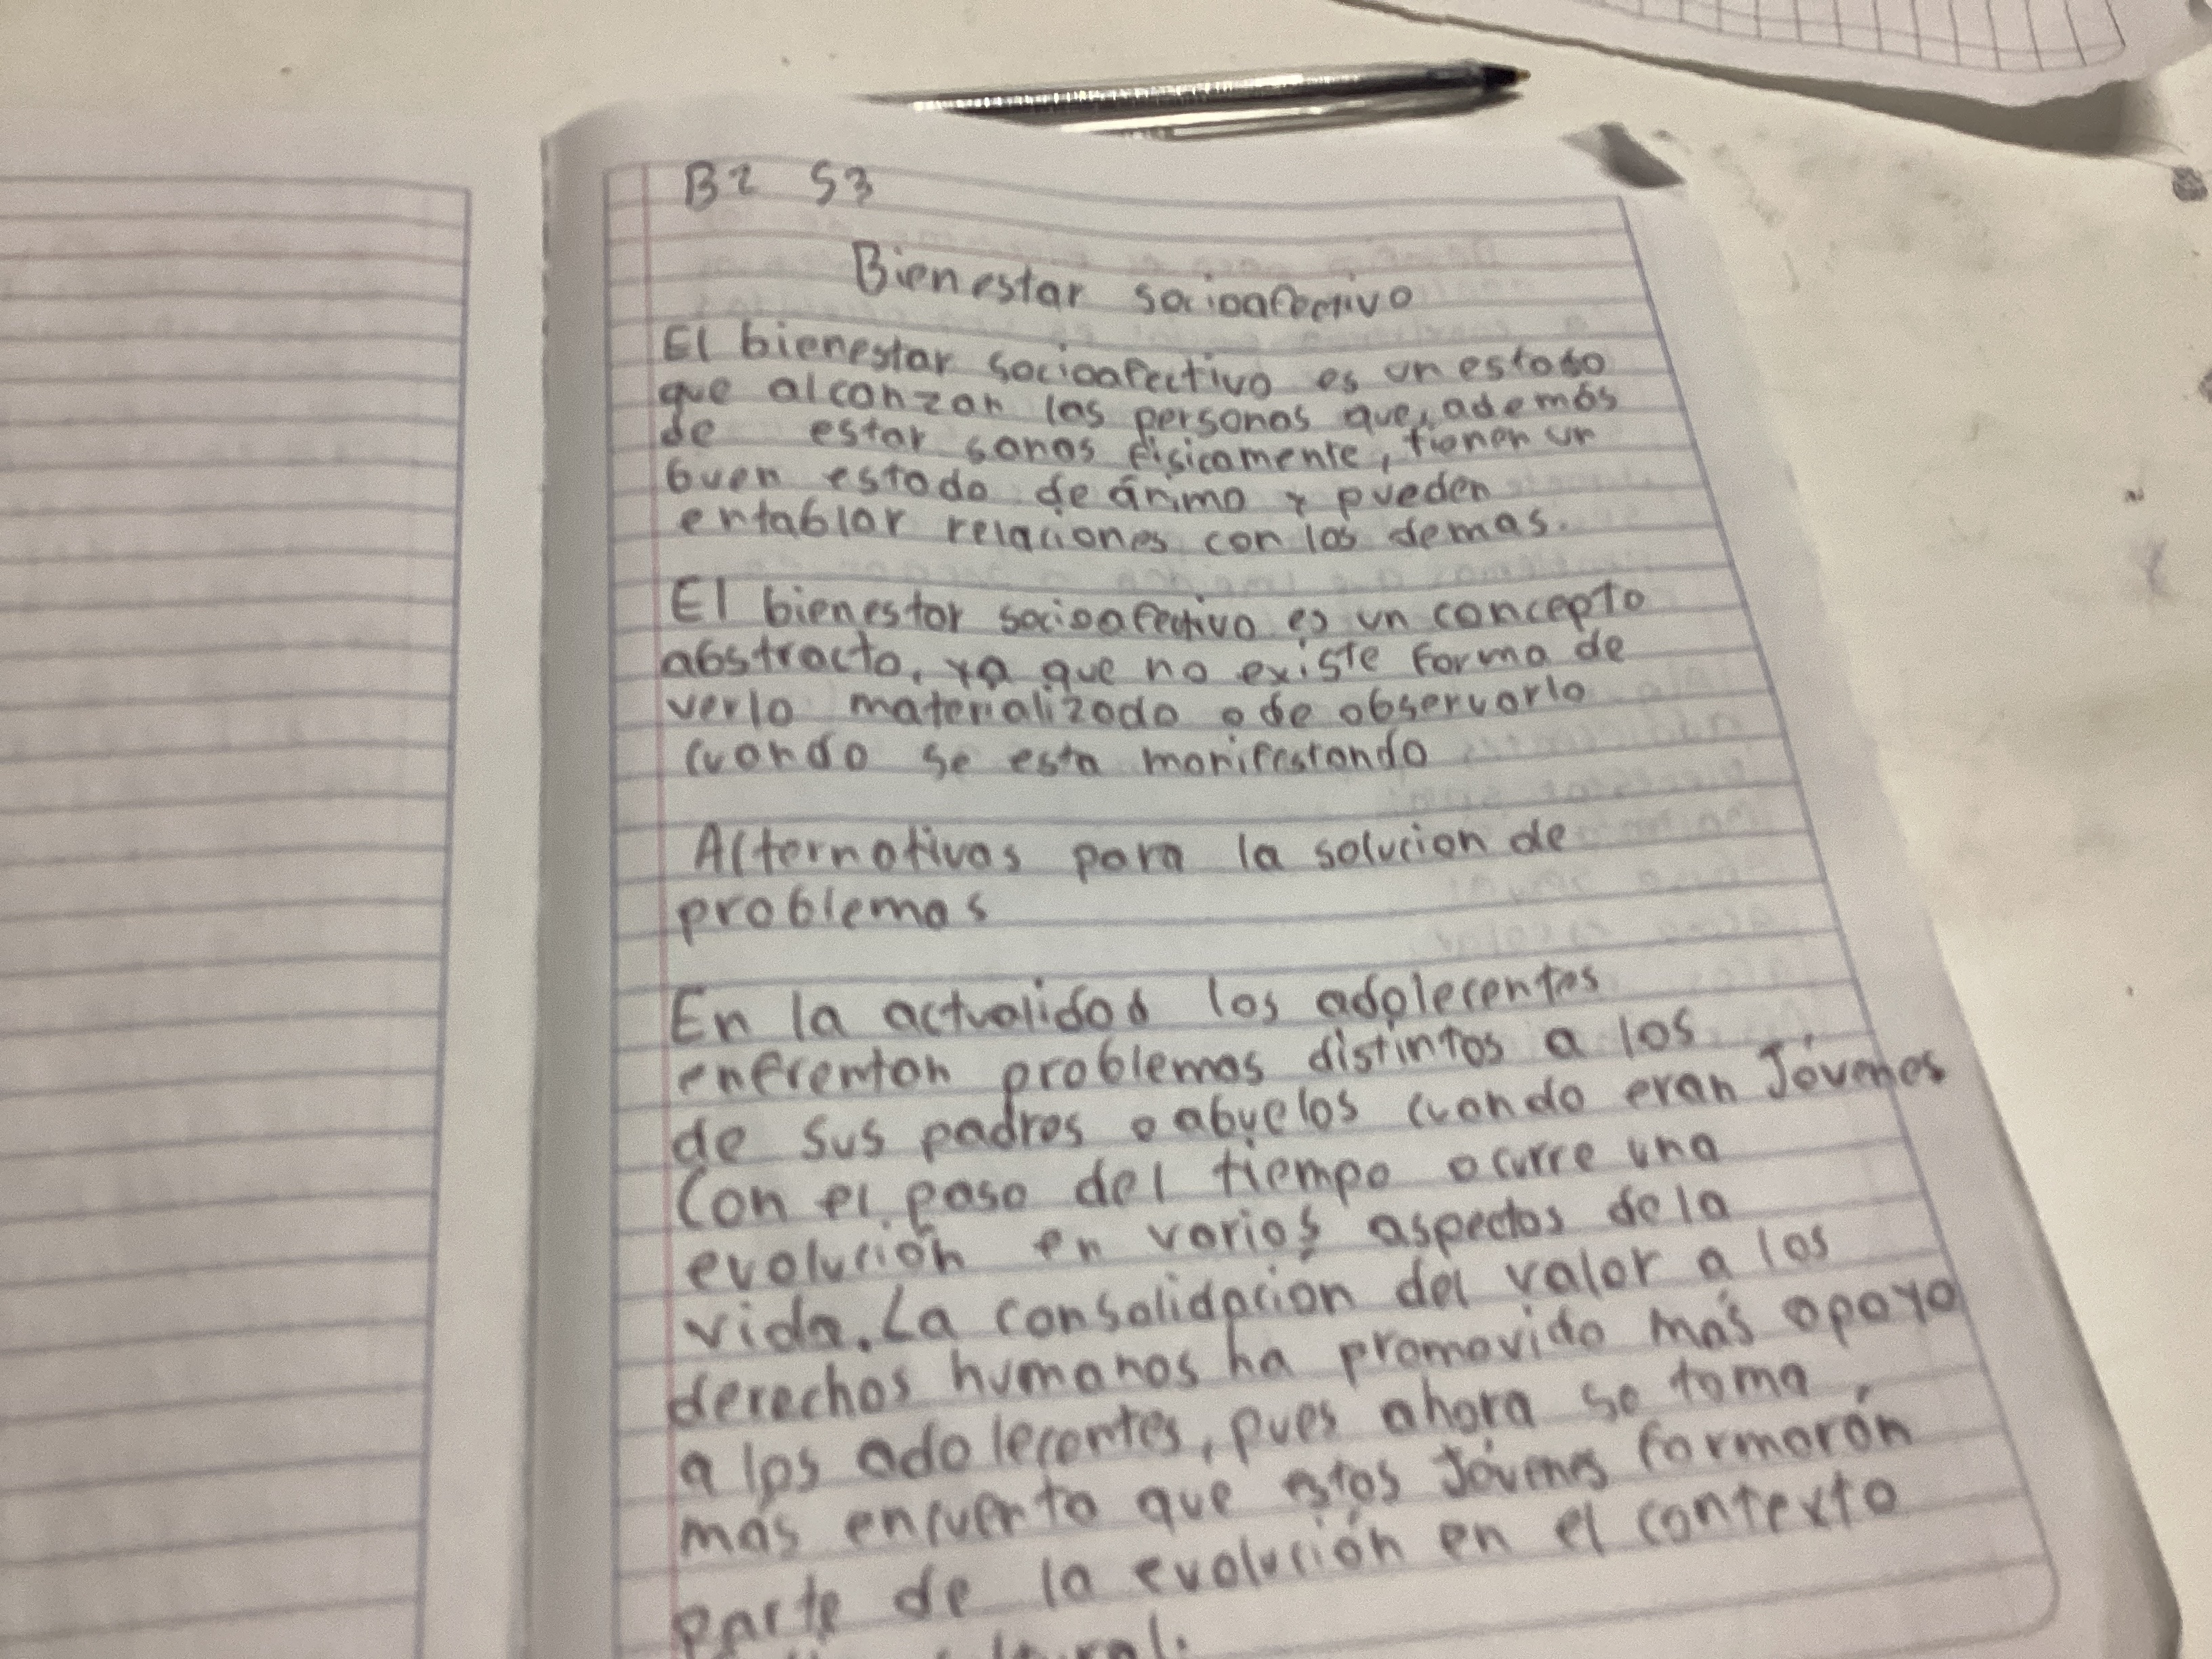 B2 S3
Bienestar socioafectivo
El bienestar socioafectivo es un estado
que alcanzan las personas que, además
de estar sanas físicamente, tienen un
buen estado de ánimo y pueden
entablar relaciones con los demas.
El bienestar socioafectivo es un concepto
abstracto, ya que no existe forma de
verlo materializado o de observarlo
cuando se esta manifestando
Alternativas para la solucion de
problemas
En la actualidad los adolecentes
enfrentan problemas distintos a los
de sus padres o abuelos cuando eran Jóvenes
Con el paso del tiempo ocurre una
evolución en varios aspectos de la
vida. La consolidación del valor a los
derechos humanos ha promovido más apoyo
a los adolecentes, pues ahora se toma
más encuenta que estos Jóvenes formarón
parte de la evolución en el contexto